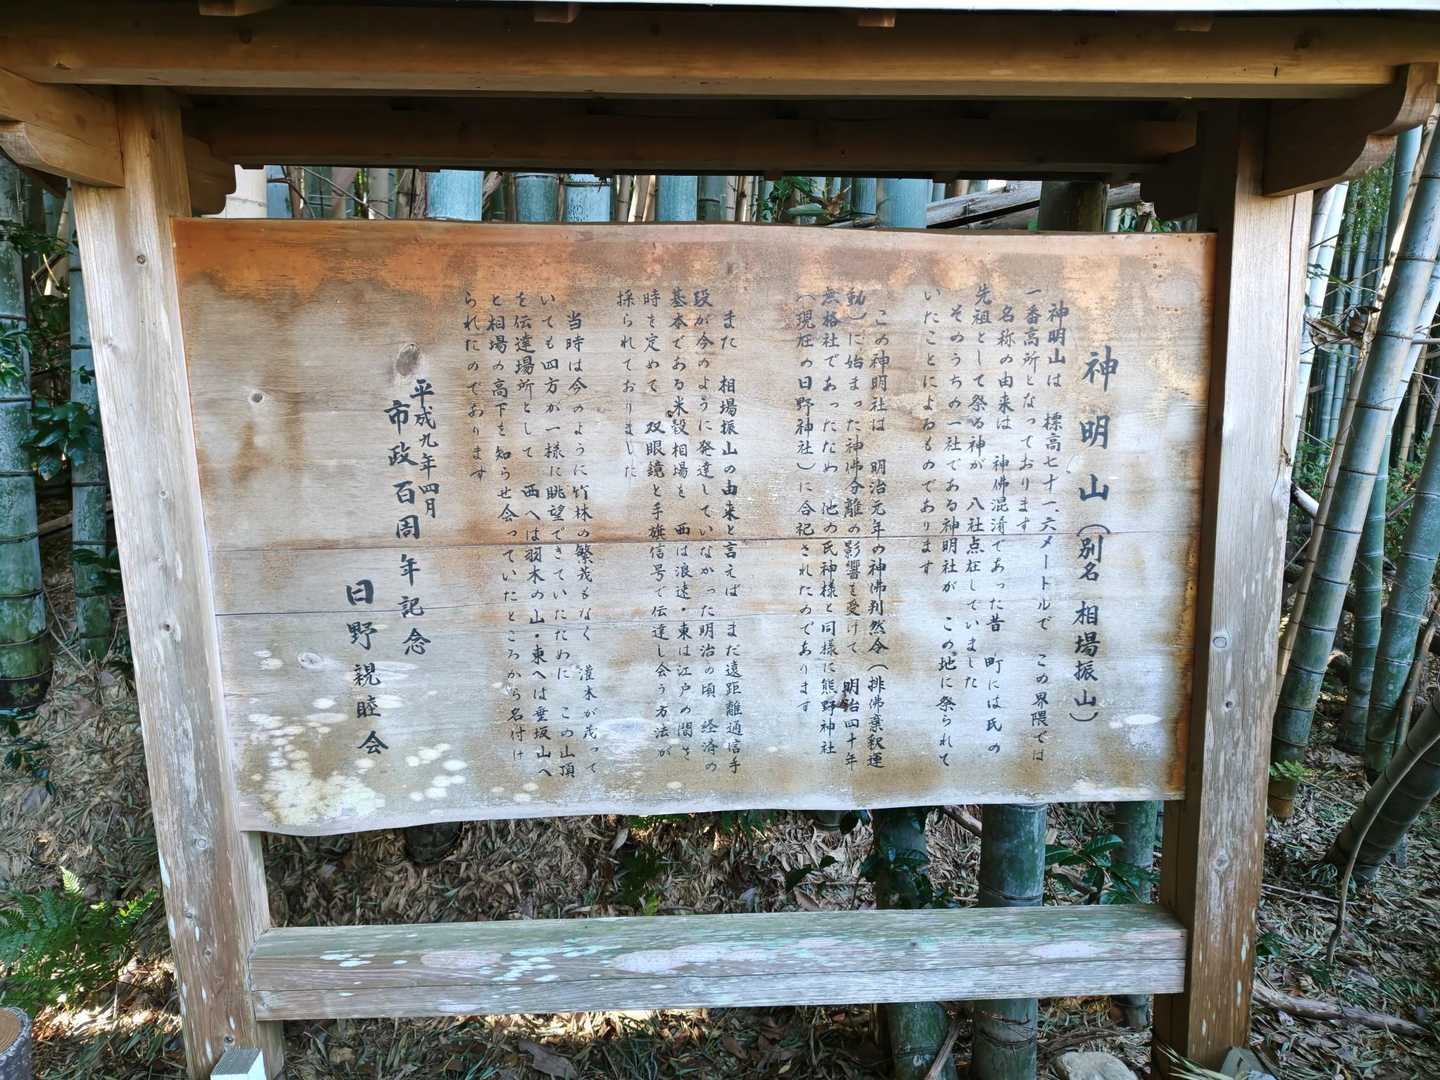 神明山（別名 相場振山）
神明山は 標高七十一、六メートルで この界隈では
一番高所となっております
名称の由来は 神佛混淆であった昔 町には氏の
先祖として祭る神が 八社点在していました
そのうちの一社である神明社が この地に祭られて
いたことによるものであります
この神明社は 明治元年の神佛判然令（排佛棄釈運
動）に始まった神佛分離の影響を受けて 明治四十年
無格社であったため 池の氏神様と同様に熊野神社
（現在の日野神社）に合祀されたのであります
また 相場振山の由来と言えば まだ遠距離通信手
段が今のように発達していなかった明治の頃 経済の
基本である米穀相場を 西は浪速・東は江戸の間を
時を定めて 双眼鏡と手旗信号で伝達し会う方法が
採られておりました
当時は今のように竹林の繁茂もなく 灌木が茂って
いても四方が一様に眺望できていたために この山頂
を伝達場所として 西へは羽木の山・東へは垂坂山へ
と相場の高下を知らせ会っていたところから名付け
られたのであります
平成九年四月
市政百周年記念
日野親睦会